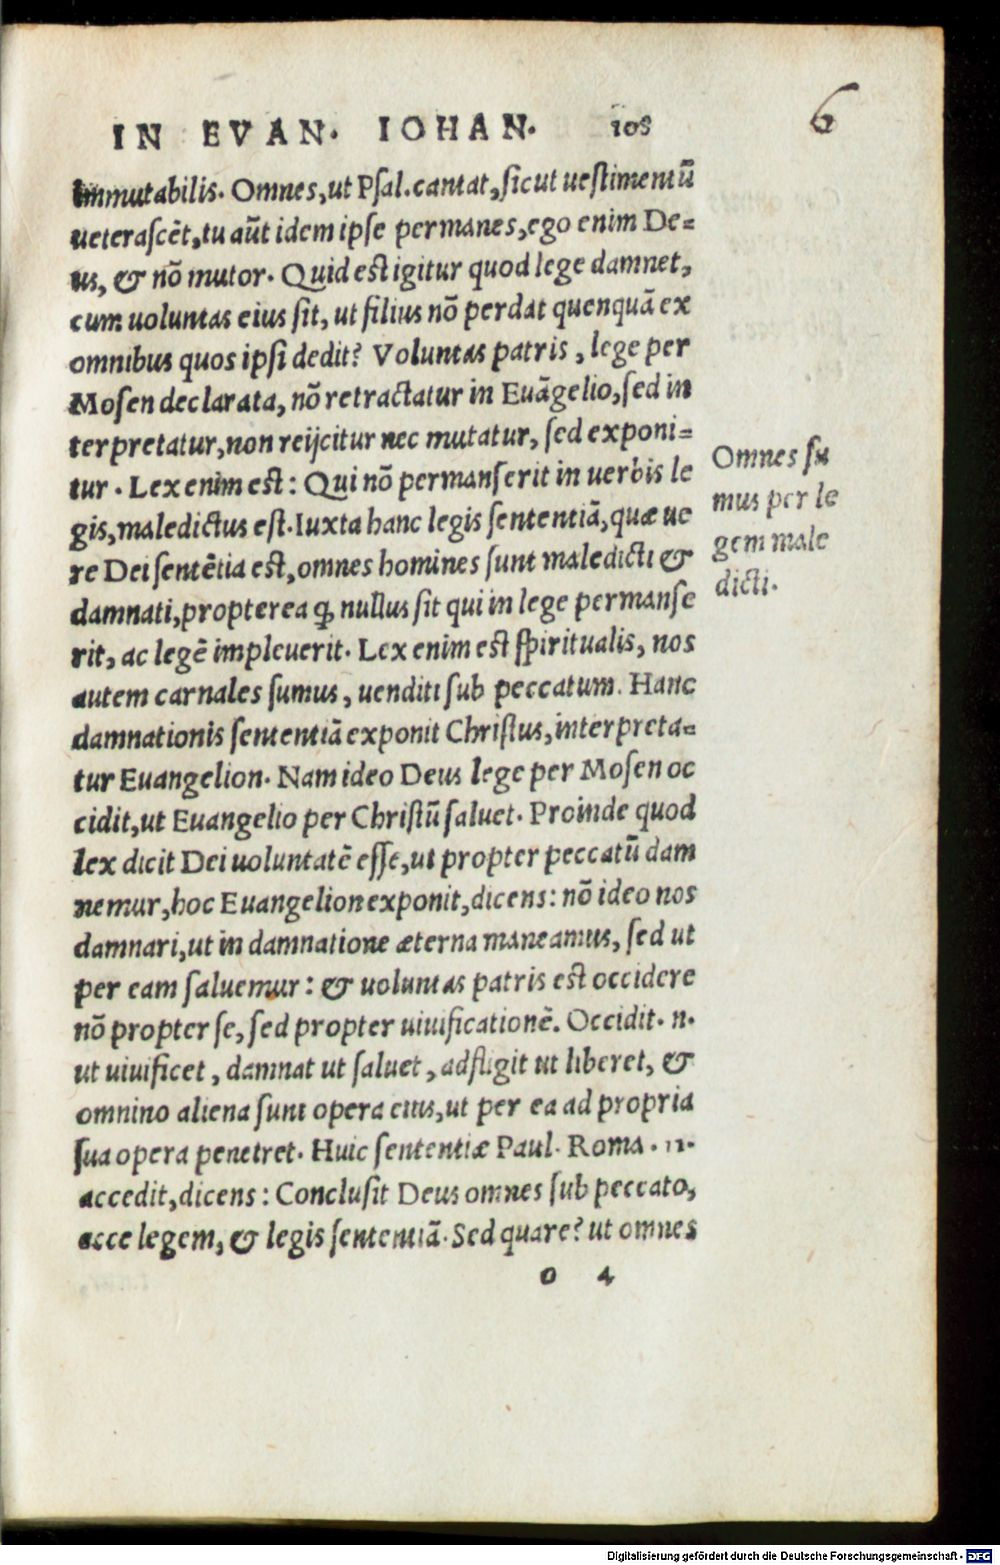 IN EVAN. IOHAN. 108
6
immutabilis. Omnes, ut Psal. cantat, sicut uestimentū
ueterascēt, tu aūt idem ipse permanes, ego enim De=
us, & nō mutor. Quid est igitur quod lege damnet,
cum uoluntas eius sit, ut filius nō perdat quenquā ex
omnibus quos ipsi dedit? Voluntas patris, lege per
Mosen declarata, nō retractatur in Euāgelio, sed in
terpretatur, non reijcitur nec mutatur, sed exponi=
tur. Lex enim est: Qui nō permanserit in uerbis le
gis, maledictus est. Iuxta hanc legis sententiā, quæ ue
re Dei sentētia est, omnes homines sunt maledicti &
damnati, propterea ꝙ nullus sit qui in lege permanse
rit, ac legē impleuerit. Lex enim est spiritualis, nos
autem carnales sumus, uenditi sub peccatum. Hanc
damnationis sententiā exponit Christus, interpreta=
tur Euangelion. Nam ideo Deus lege per Mosen oc
cidit, ut Euangelio per Christū saluet. Proinde quod
lex dicit Dei uoluntatē esse, ut propter peccatū dam
nemur, hoc Euangelion exponit, dicens: nō ideo nos
damnari, ut in damnatione æterna maneamus, sed ut
per eam saluemur: & uoluntas patris est occidere
nō propter se, sed propter uiuificationē. Occidit. n.
ut uiuificet, damnat ut saluet, adfligit ut liberet, &
omnino aliena sunt opera eius, ut per ea ad propria
sua opera penetret. Huic sententiæ Paul. Roma. 11.
accedit, dicens: Conclusit Deus omnes sub peccato,
acce legem, & legis sententiā. Sed quare? ut omnes
o 4
Omnes su
mus per le
gem male
dicti.
Digitalisierung gefördert durch die Deutsche Forschungsgemeinschaft - DFG